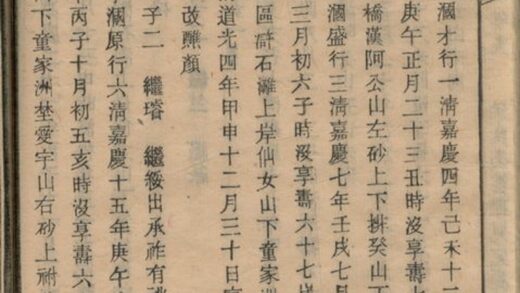 國才行一清嘉慶四年己未十二
庚午正月二十三丑時沒享壽七
橋漢阿公山左砂上下排癸山丁
國盛行三清嘉慶七年壬戌七月
三月初六子時沒享壽六十七歲
區滸石灘上岸仙女山下童家洲
道光四年甲申十二月三十日
改醮顏
子二　繼璿　繼綏出承祚有祧
國原行六清嘉慶十五年庚午
丙子十月初五亥時沒享壽六
下童家洲塟愛字山右砂上祔